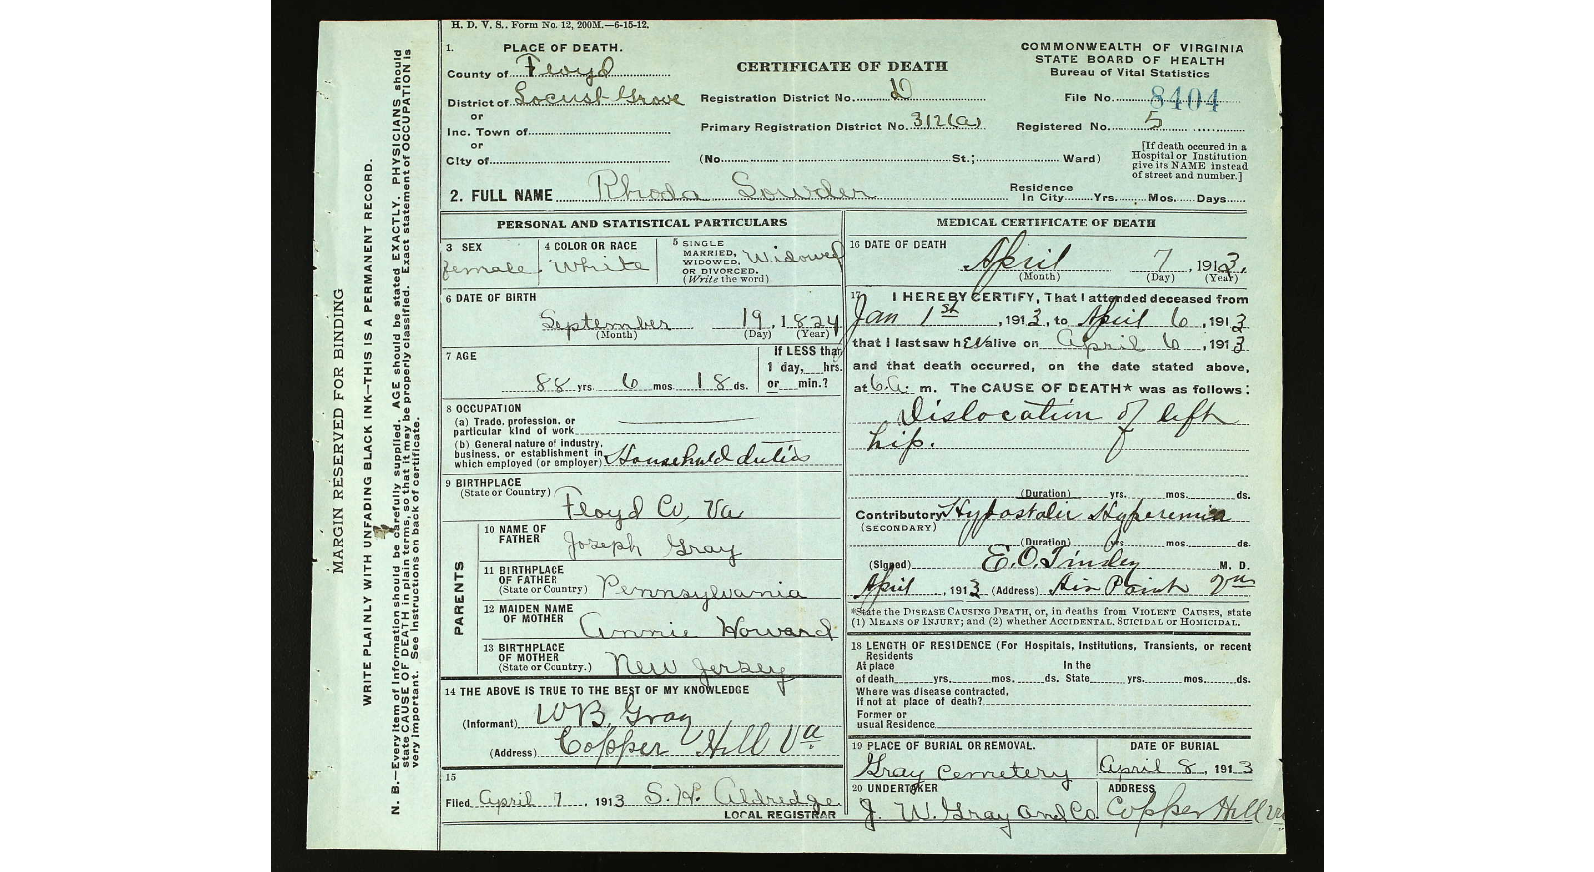 H. D. V. S.. Form No. 12, 200M.—6-15-12.
1. PLACE OF DEATH.
County of Floyd
District of Locust Grove
or
Inc. Town of
or
City of
CERTIFICATE OF DEATH
Registration District No. D
Primary Registration District No. 312(a)
(No. St.; Ward)
COMMONWEALTH OF VIRGINIA
STATE BOARD OF HEALTH
Bureau of Vital Statistics
File No. 8404
Registered No. 5
[If death occured in a
Hospital or Institution
give its NAME instead
of street and number.]
2. FULL NAME Rhoda Sowder
Residence
In City Yrs. Mos. Days
PERSONAL AND STATISTICAL PARTICULARS
3 SEX
female
4 COLOR OR RACE
White
5 SINGLE
MARRIED,
WIDOWED,
OR DIVORCED.
(Write the word)
Widowed
6 DATE OF BIRTH
September 19, 1824
(Month) (Day) (Year)
7 AGE
88 yrs. 6 mos. 18 ds.
If LESS than
1 day, hrs.
or min.?
8 OCCUPATION
(a) Trade, profession, or
particular kind of work
(b) General nature of industry,
business, or establishment in
which employed (or employer) Household duties
9 BIRTHPLACE
(State or Country) Floyd Co, Va
PARENTS
10 NAME OF
FATHER Joseph Gray
11 BIRTHPLACE
OF FATHER
(State or Country) Pennsylvania
12 MAIDEN NAME
OF MOTHER Annie Howard
13 BIRTHPLACE
OF MOTHER
(State or Country.) New Jersey
14 THE ABOVE IS TRUE TO THE BEST OF MY KNOWLEDGE
(Informant) W B, Gray
(Address) Copper Hill Va
15
Filed April 7, 1913 S. H. Aldredge
LOCAL REGISTRAR
MEDICAL CERTIFICATE OF DEATH
16 DATE OF DEATH
April 7, 1913.
(Month) (Day) (Year)
17 I HEREBY CERTIFY, That I attended deceased from
Jan 1st, 1913, to April 6, 1913
that I last saw her alive on April 6, 1913
and that death occurred, on the date stated above,
at 6. A. m. The CAUSE OF DEATH* was as follows:
Dislocation of left
hip.
(Duration) yrs. mos. ds.
Contributory Hypostatic Hyperemia
(SECONDARY)
(Duration) yrs. mos. ds.
(Signed) E. O. Tinsley M. D.
April, 1913 (Address) Air Point Va
*State the DISEASE CAUSING DEATH, or, in deaths from VIOLENT CAUSES, state
(1) MEANS OF INJURY; and (2) whether ACCIDENTAL, SUICIDAL or HOMICIDAL.
18 LENGTH OF RESIDENCE (For Hospitals, Institutions, Transients, or recent
Residents
At place In the
of death yrs. mos. ds. State yrs. mos. ds.
Where was disease contracted,
if not at place of death?
Former or
usual Residence
19 PLACE OF BURIAL OR REMOVAL.
Gray Cemetery
DATE OF BURIAL
April 8, 1913
20 UNDERTAKER
J. W. Gray and Co.
ADDRESS
Copper Hill Va
MARGIN RESERVED FOR BINDING
WRITE PLAINLY WITH UNFADING BLACK INK—THIS IS A PERMANENT RECORD.
N. B.—Every item of information should be carefully supplied. AGE should be stated EXACTLY. PHYSICIANS should
state CAUSE OF DEATH in plain terms, so that it may be properly classified. Exact statement of OCCUPATION is
very important. See instructions on back of certificate.